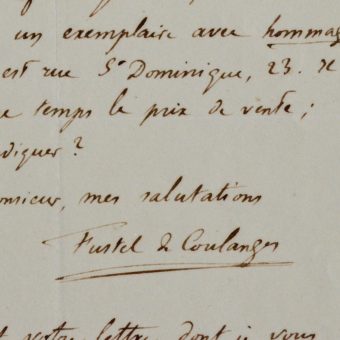 un exemplaire avec hommag
est rue St Dominique, 23. de
e temps le prix de vente ;
diquer ?
onsieur, mes salutations
Fustel de Coulanges
t votre lettre dont je vous